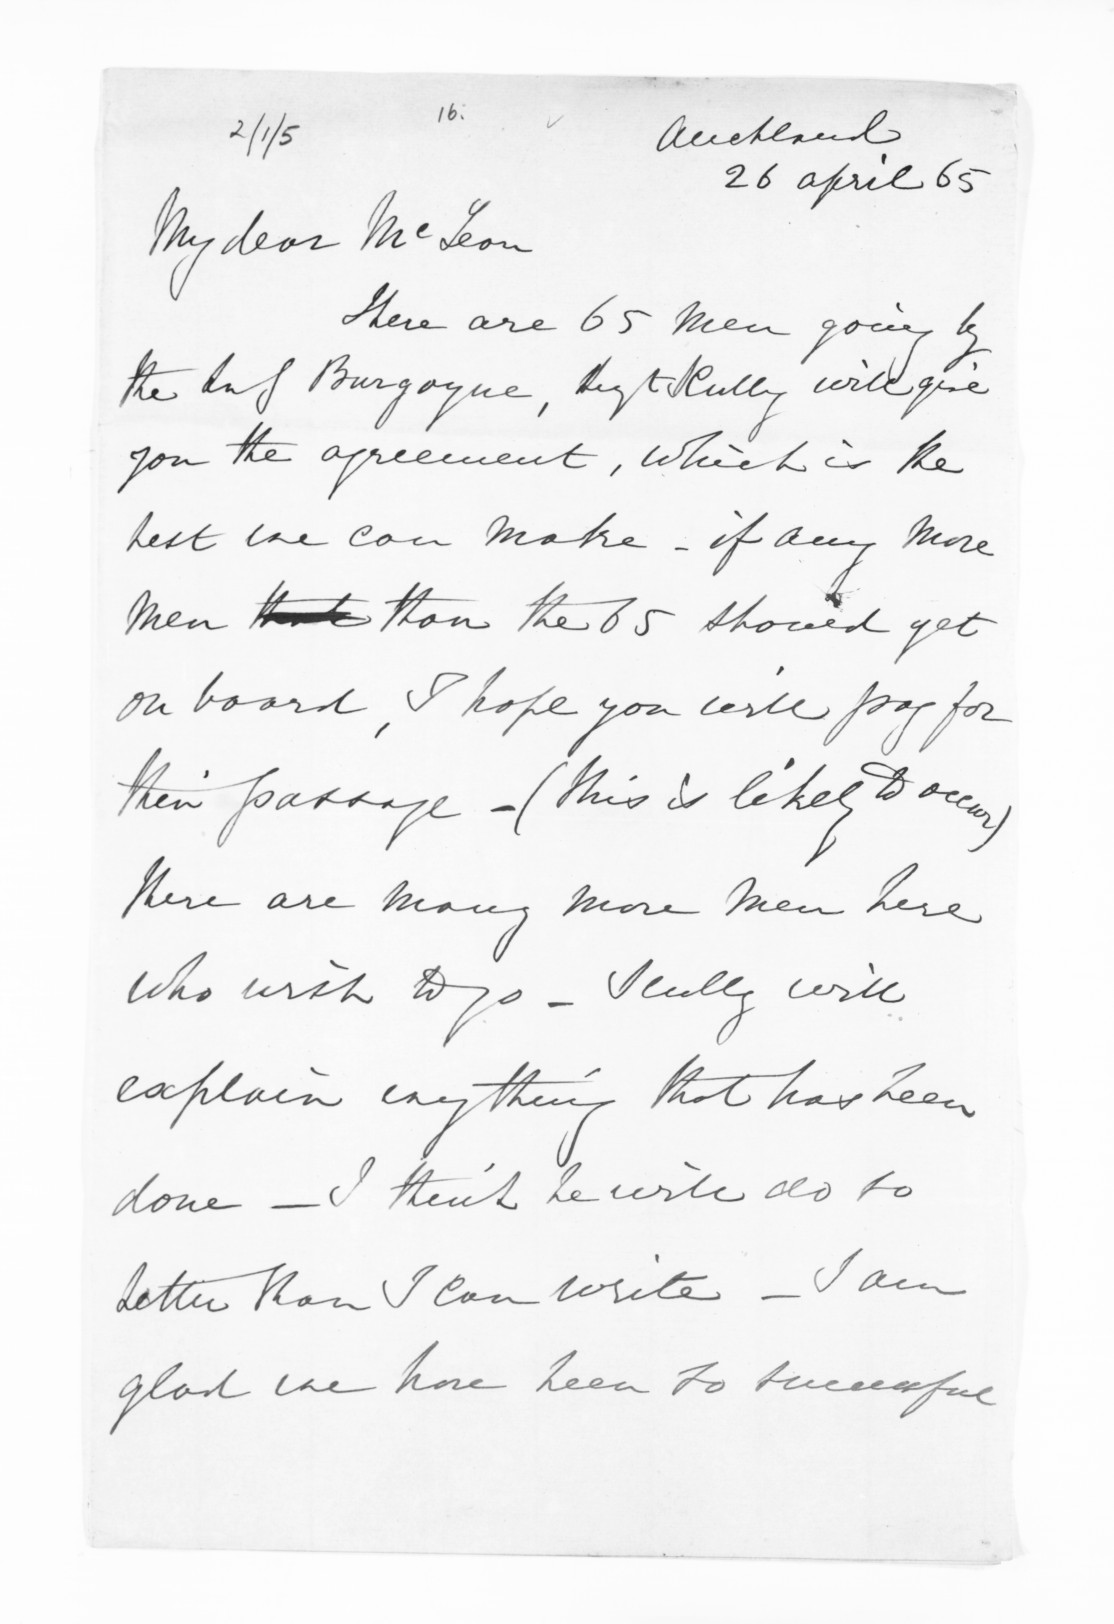 2/1/5
16.
Auckland
26 april 65
My dear McLean
There are 65 men going by
the Burgoyne, Sergt Scully will give
you the agreement, which is the
best we can make - if any more
men that than the 65 should get
on board, I hope you will pay for
their passage - (this is likely to occur)
there are many more men here
who wish to go - Scully will
explain anything that has been
done - I think he will do so
better than I can write - I am
glad we have been so successful